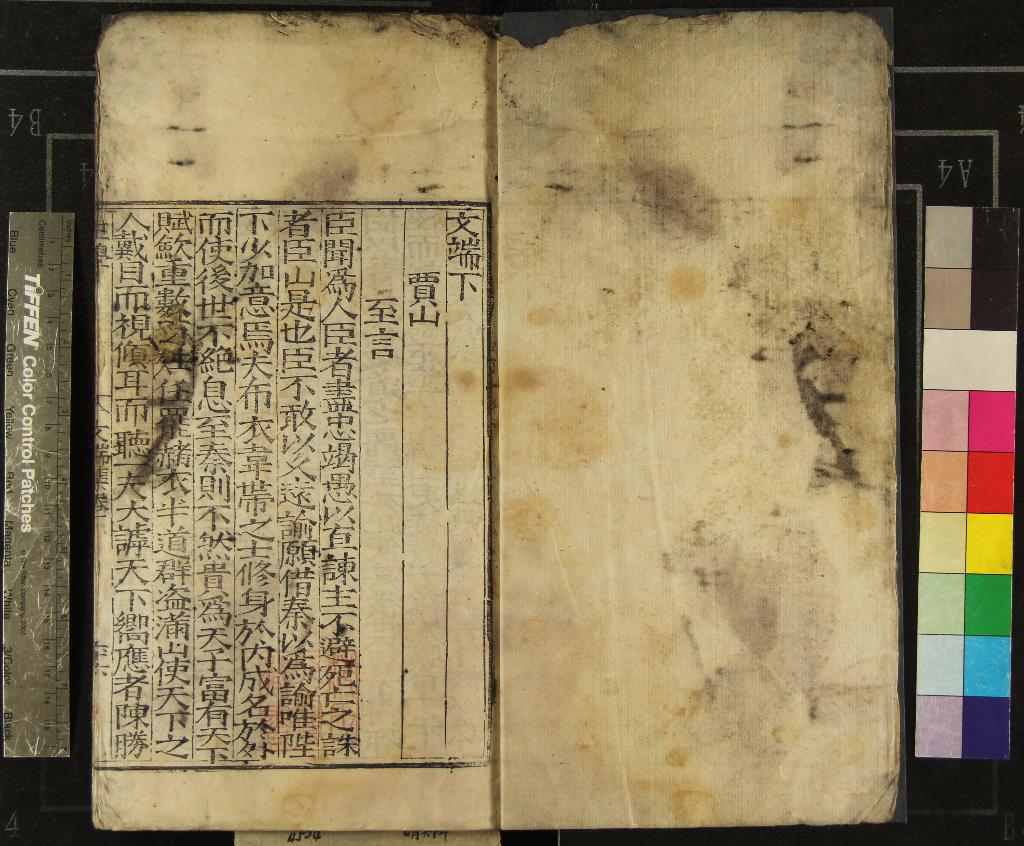 文端下
賈山
至言
臣聞爲人臣者盡忠竭愚以直諫主不避死亡之誅
者臣山是也臣不敢以久遠諭願借秦以爲諭唯陛
下少加意焉夫布衣韋帶之士修身於內成名於外
而使後世不絶息至秦則不然貴爲天子富有天下
賦斂重數百姓任罷赭衣半道群盗滿山使天下之
人戴目而視傾耳而聽一夫大謼天下嚮應者陳勝
TIFFEN Color Control Patches
Centimetres
Inches
Blue
Cyan
Green
Yellow
Red
Magenta
White
3/Color
Black
B4
A4
4
4